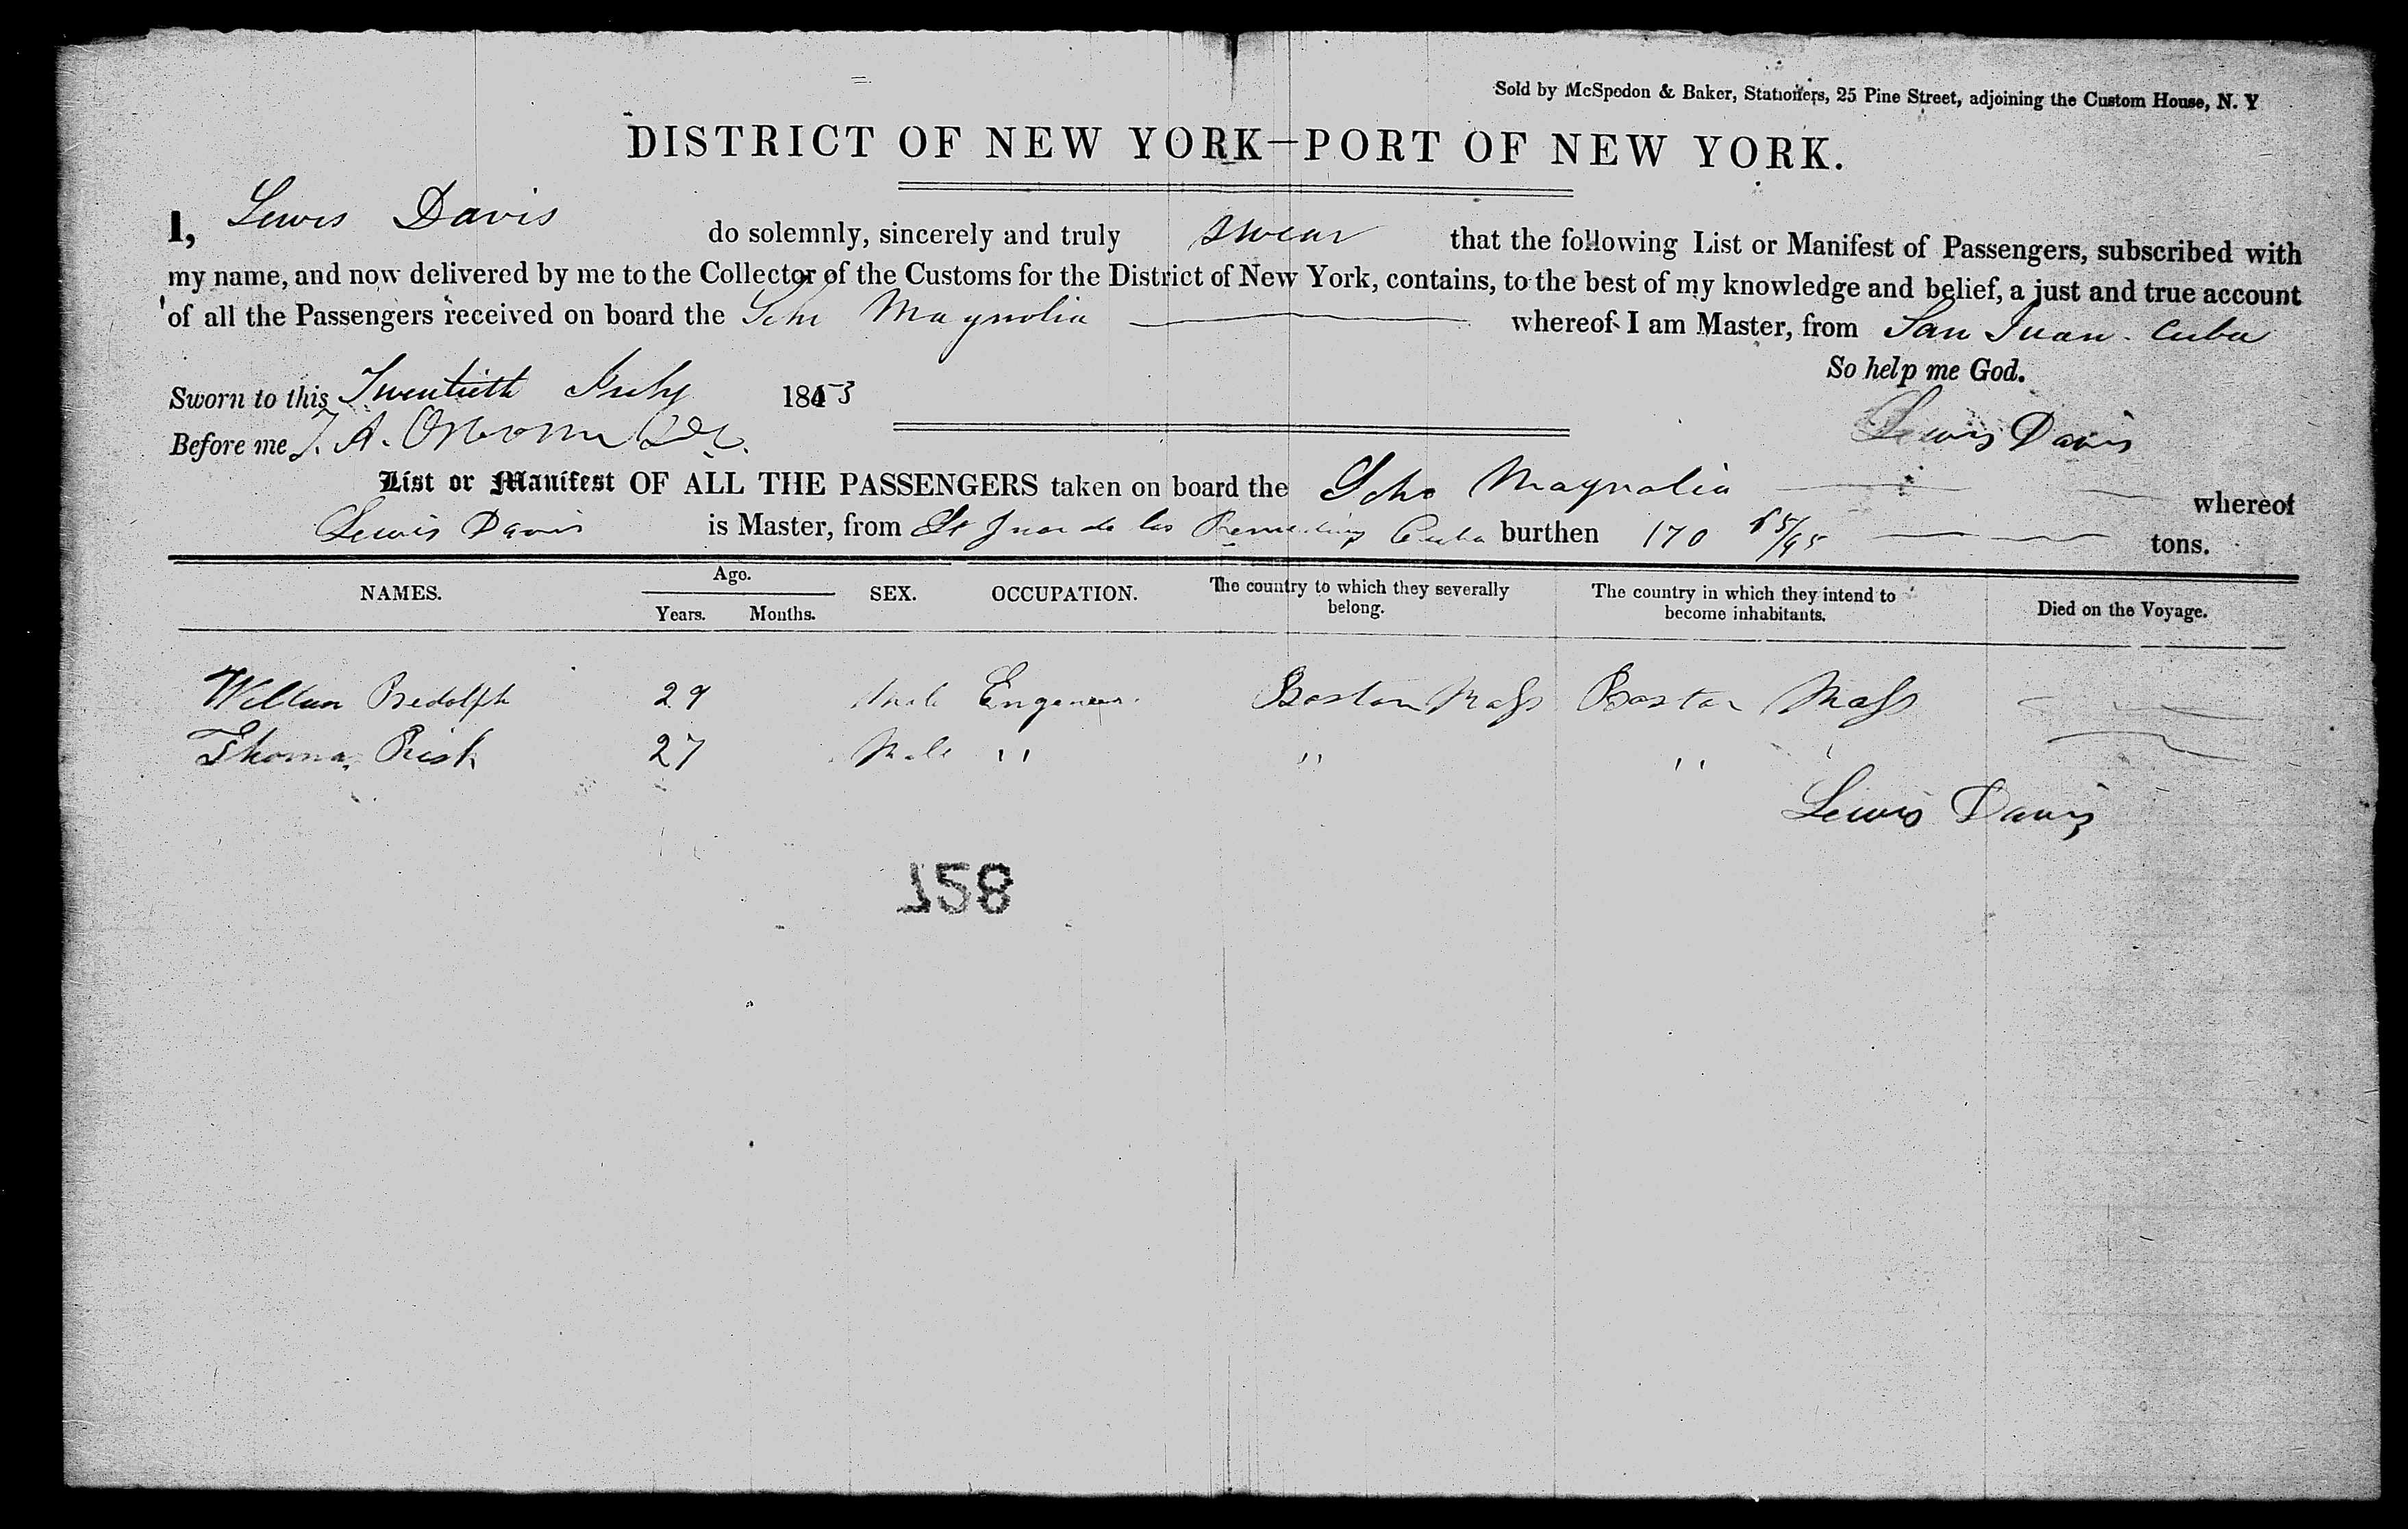 Sold by McSpedon & Baker, Stationers, 25 Pine Street, adjoining the Custom House, N. Y
DISTRICT OF NEW YORK—PORT OF NEW YORK.
I, Lewis Davis do solemnly, sincerely and truly swear that the following List or Manifest of Passengers, subscribed with
my name, and now delivered by me to the Collector of the Customs for the District of New York, contains, to the best of my knowledge and belief, a just and true account
of all the Passengers received on board the Schr Magnolia whereof I am Master, from San Juan. Cuba
So help me God.
Sworn to this Twentieth July 1853
Lewis Davis
Before me
List or Manifest OF ALL THE PASSENGERS taken on board the Schr Magnolia whereof
Lewis Davis is Master, from St Juan de los Cuba burthen 170 65/95 tons.
NAMES. Age. Years. Months. SEX. OCCUPATION. The country to which they severally belong. The country in which they intend to become inhabitants. Died on the Voyage.
Redolph 29 Male Engeneer. Boston Mass Boston Mass
Thomas 27 Male " " "
Lewis Davis
158